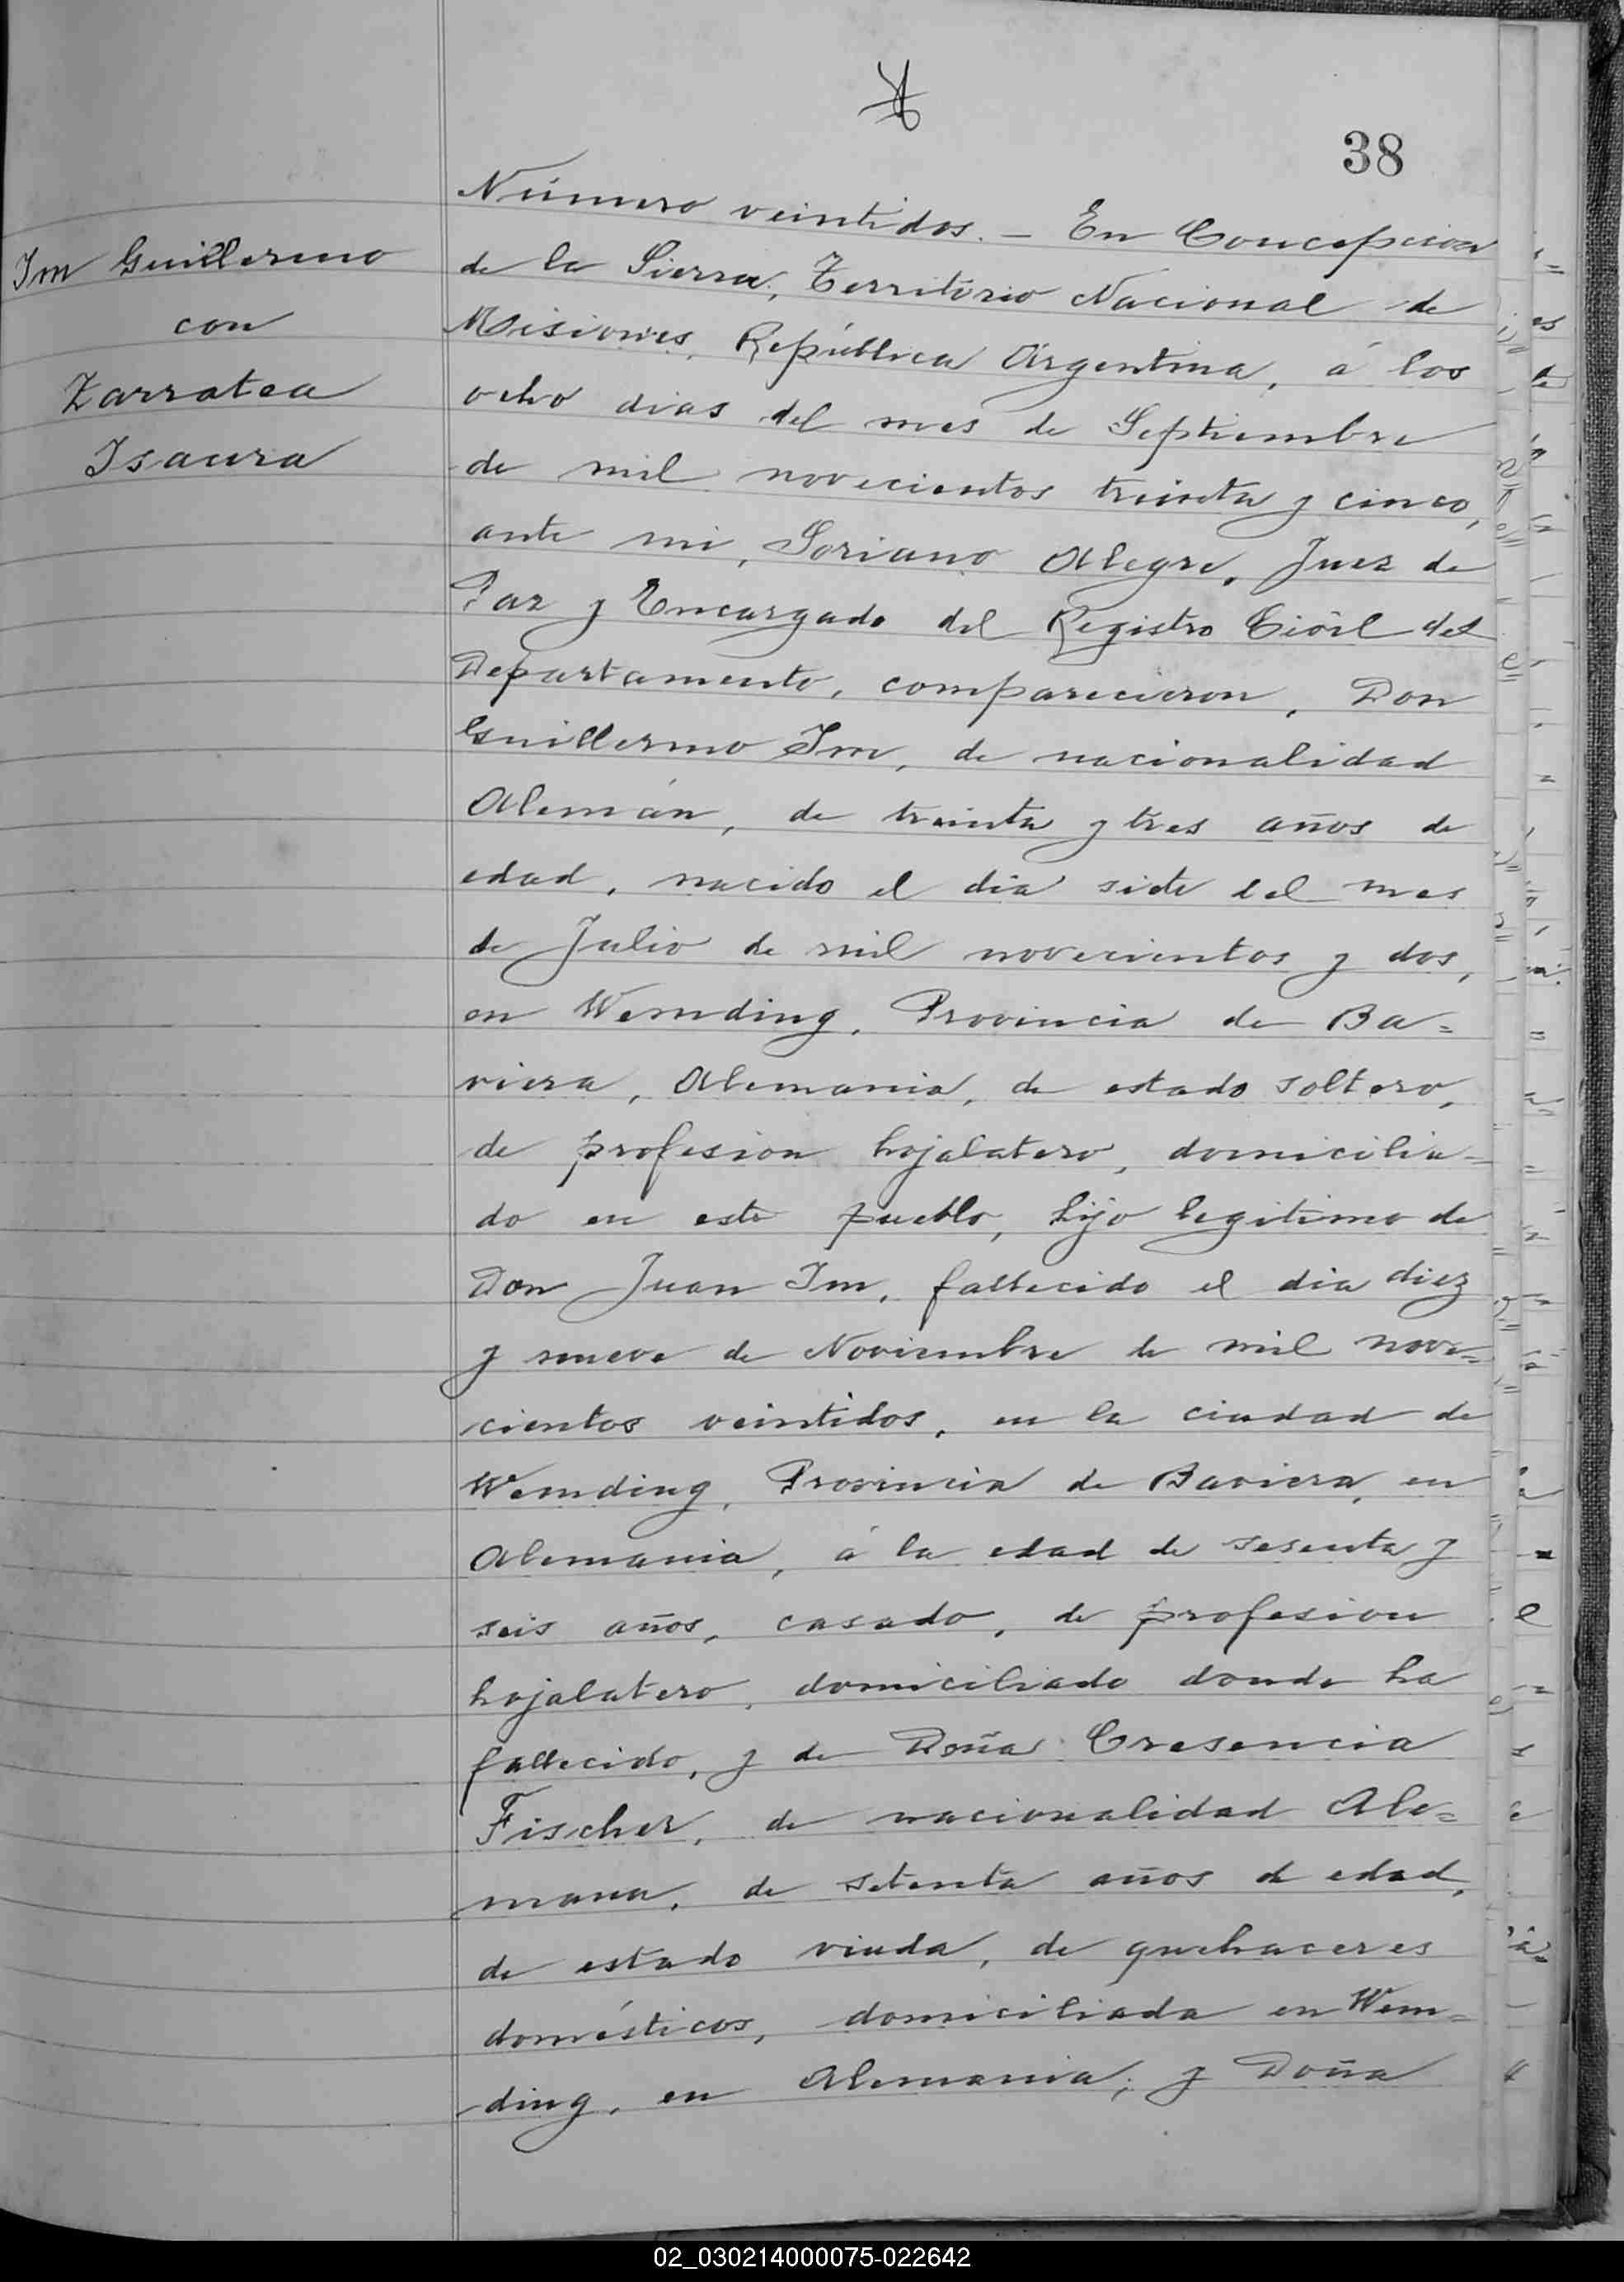 38
Im Guillermo
con
Zarratea
Isaura
Número veintidos. - En Concepcion
de la Sierra, Territorio Nacional de
Misiones, República Argentina, á los
ocho dias del mes de Septiembre
de mil novecientos treinta y cinco,
ante mi, Soriano Alegre, Juez de
Paz y Encargado del Registro Civil del
Departamento, comparecieron, Don
Guillermo Im, de nacionalidad
Alemán, de treinta y tres años de
edad, nacido el dia siete del mes
de Julio de mil novecientos y dos,
en Wemding, Provincia de Ba=
viera, Alemania, de estado soltero,
de profesion hojalatero, domicilia=
do en este pueblo, hijo legitimo de
Don Juan Im, fallecido el dia diez
y nueve de Noviembre de mil nove=
cientos veintidos, en la ciudad de
Wemding, Provincia de Baviera, en
Alemania, á la edad de sesenta y
seis años, casado, de profesion
hojalatero, domiciliado donde ha
fallecido, y de Doña Cresencia
Fischer, de nacionalidad Ale=
mana, de setenta años de edad,
de estado viuda, de quehaceres
domésticos, domiciliada en Wem=
ding, en Alemania; y Doña
02_030214000075-022642